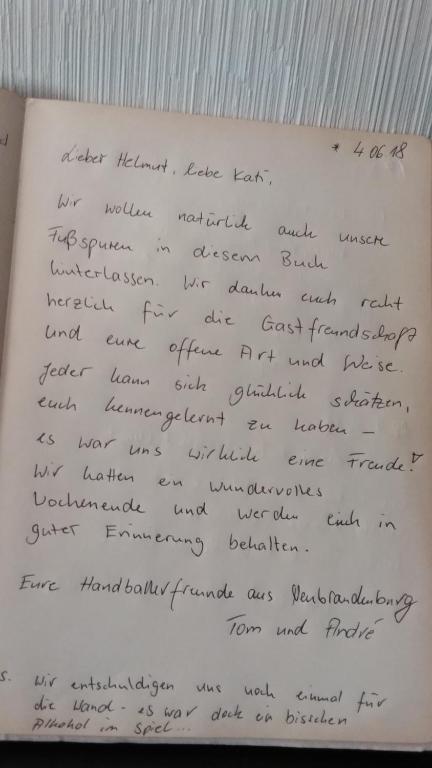 * 4 06 18
Lieber Helmut, liebe Kati,
Wir wollen natürlich auch unsere
Fußspuren in diesem Buch
hinterlassen. Wir danken euch recht
herzlich für die Gastfreundschaft
und eure offene Art und Weise.
Jeder kann sich glücklich schätzen,
euch kennengelernt zu haben –
es war uns wirklich eine Freude!
Wir hatten ein wundervolles
Wochenende und werden euch in
guter Erinnerung behalten.
Eure Handballerfreunde aus Neubrandenburg
Tom und André
s. Wir entschuldigen uns noch einmal für
die Wand - es war doch ein bisschen
Alkohol im Spiel...